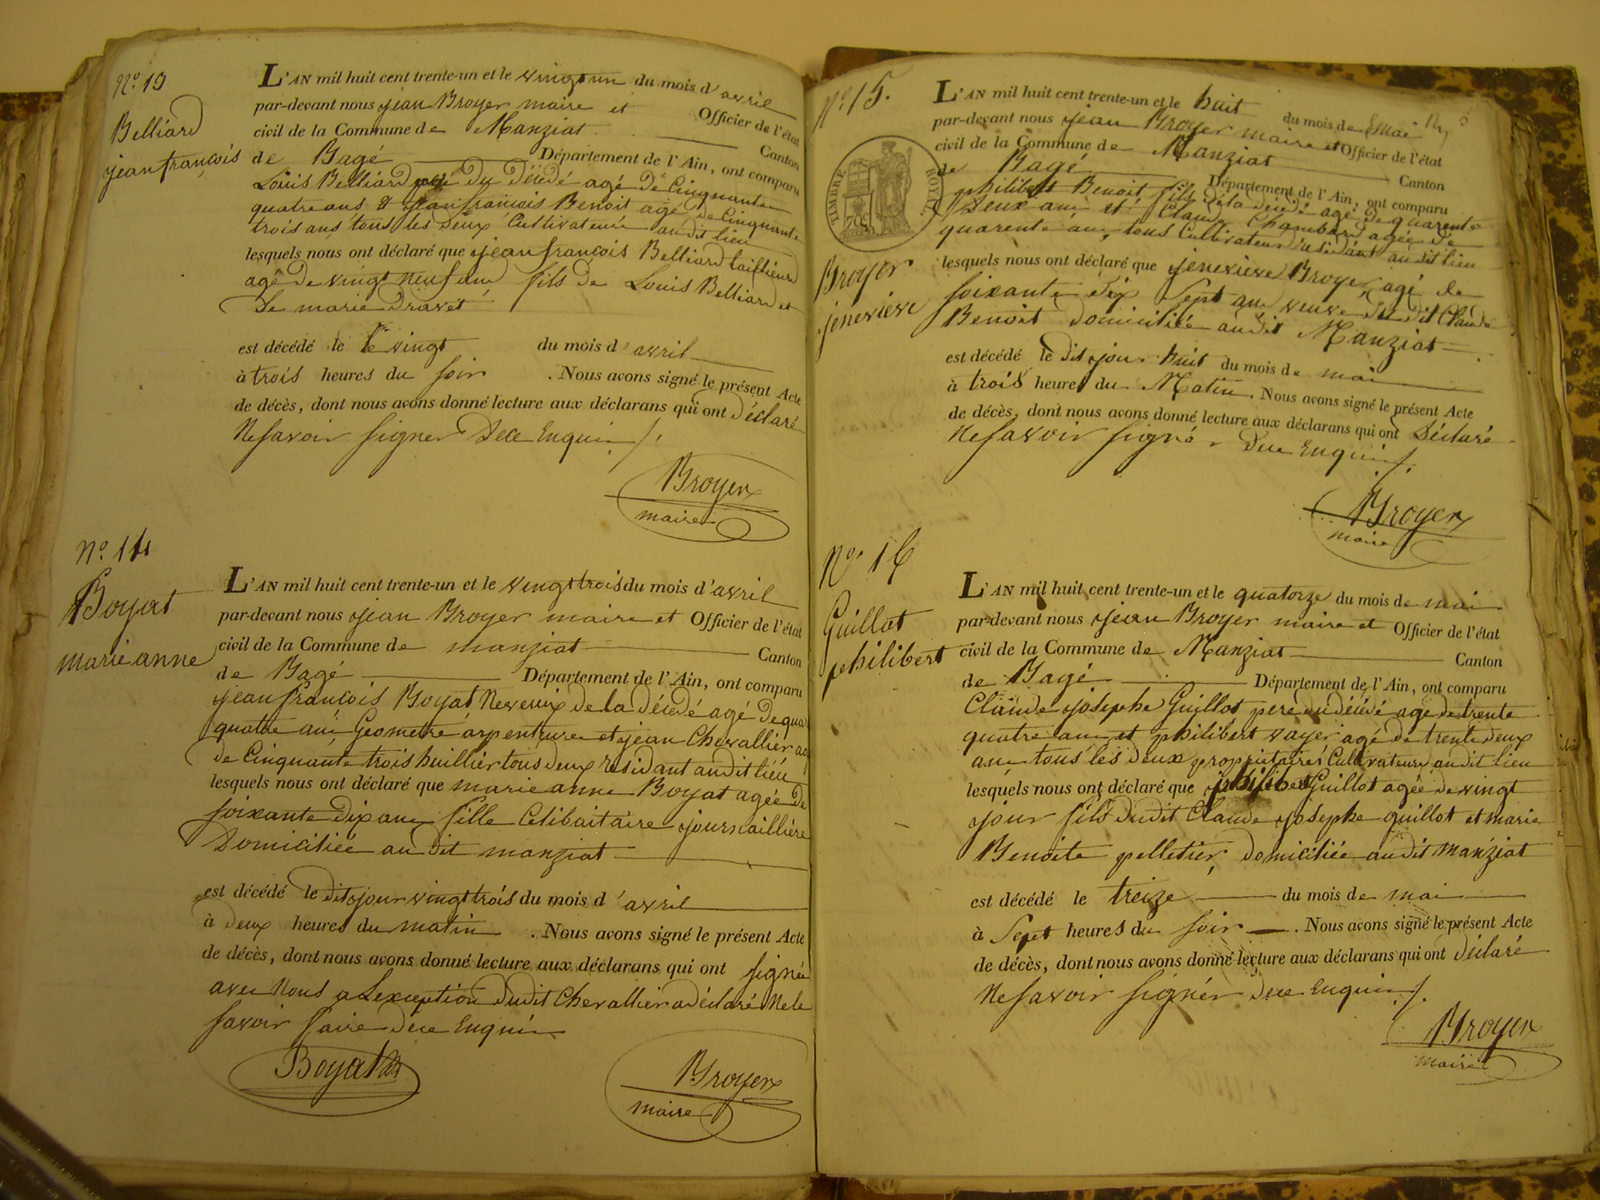 N.o 13
Belliard
jean françois
L'AN mil huit cent trente-un et le vingt un du mois d'avril
par-devant nous jean Broyer maire et Officier de l'état
civil de la Commune de Manziat Canton
de Bagé Département de l'Ain, ont comparu
Louis Belliard père du décédé agé de Cinquante
quatre ans & jean françois Benoit agé de Cinquante
trois ans tous les deux Cultivateurs audit lieu
lesquels nous ont déclaré que jean françois Belliard taillieur
agé de vingt neuf ans fils de Louis Belliard et
de marie Dravet
est décédé le vingt du mois d'avril
à trois heures du soir . Nous avons signé le présent Acte
de décès, dont nous avons donné lecture aux déclarans qui ont déclaré
Ne savoir signer Dece Enquis /.
Broyer
maire
N.o 14
Boyat
marie anne
L'AN mil huit cent trente-un et le vingt trois du mois d'avril
par-devant nous jean Broyer maire et Officier de l'état
civil de la Commune de manziat Canton
de Bagé Département de l'Ain, ont comparu
jean françois Boyat Neveux de la décédé agé de qua
quatre ans Geometre arpenteure et jean Chevallier agé
de Cinquante trois huillier tous deux residant audit lieu
lesquels nous ont déclaré que marie anne Boyat agée de
soixante Dix ans fille Celibaitaire journaillière
Domiciliée audit manziat
est décédé le dit jour vingt trois du mois d'avril
à deux heures du matin . Nous avons signé le présent Acte
de décès, dont nous avons donné lecture aux déclarans qui ont signé
avec Nous a L'exception dudit Chevallier a déclaré Ne le
savoir faire Dece Enquis
Boyat
Broyer
maire
N.o 15.
TIMBRE ROYAL
Broyer
jenevieve
L'AN mil huit cent trente-un et le huit du mois de mai
par-devant nous jean Broyer maire et Officier de l'état
civil de la Commune de Manziat Canton
de Bagé Département de l'Ain, ont comparu
philibert Benoit fils de la décédé agé de quarente
Deux ans et Claude Chambard agée de
quarente ans tous Cultivateurs residant audit lieu
lesquels nous ont déclaré que jenevieve Broyer agé de
soixante dix Sept ans veuve du dit Claude
Benoit domiciliée audit Manziat
est décédé le dit jour huit du mois de mai
à trois heures du Matin . Nous avons signé le présent Acte
de décès, dont nous avons donné lecture aux déclarans qui ont Déclaré
Ne savoir signé Dece Enquis /.
Broyer
maire
N.o 16
Guillot
philibert
L'AN mil huit cent trente-un et le quatorze du mois de mai
par-devant nous jean Broyer maire et Officier de l'état
civil de la Commune de Manziat Canton
de Bagé Département de l'Ain, ont comparu
Claude josephe Guillot pere du décédé agé de trente
quatre ans et philibert vayer agé de trente deux
ans tous les deux propriétaires Cultivateurs audit lieu
lesquels nous ont déclaré que philibert Guillot agée de vingt
jour fils dudit Claude josephe guillot et marie
Benoite pelletier domiciliée audit manziat
est décédé le treize du mois de mai
à Sept heures du soir . Nous avons signé le présent Acte
de décès, dont nous avons donné lecture aux déclarans qui ont déclaré
Ne savoir signér Dece Enquis /.
Broyer
maire